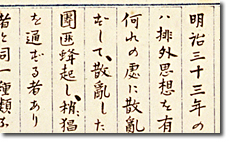 明治三十三年の
ハ排外思想を有
何れの處に散亂
むして、散亂した
團匪蜂起し、稍猖
を通ずる者あり
者と同一種類る